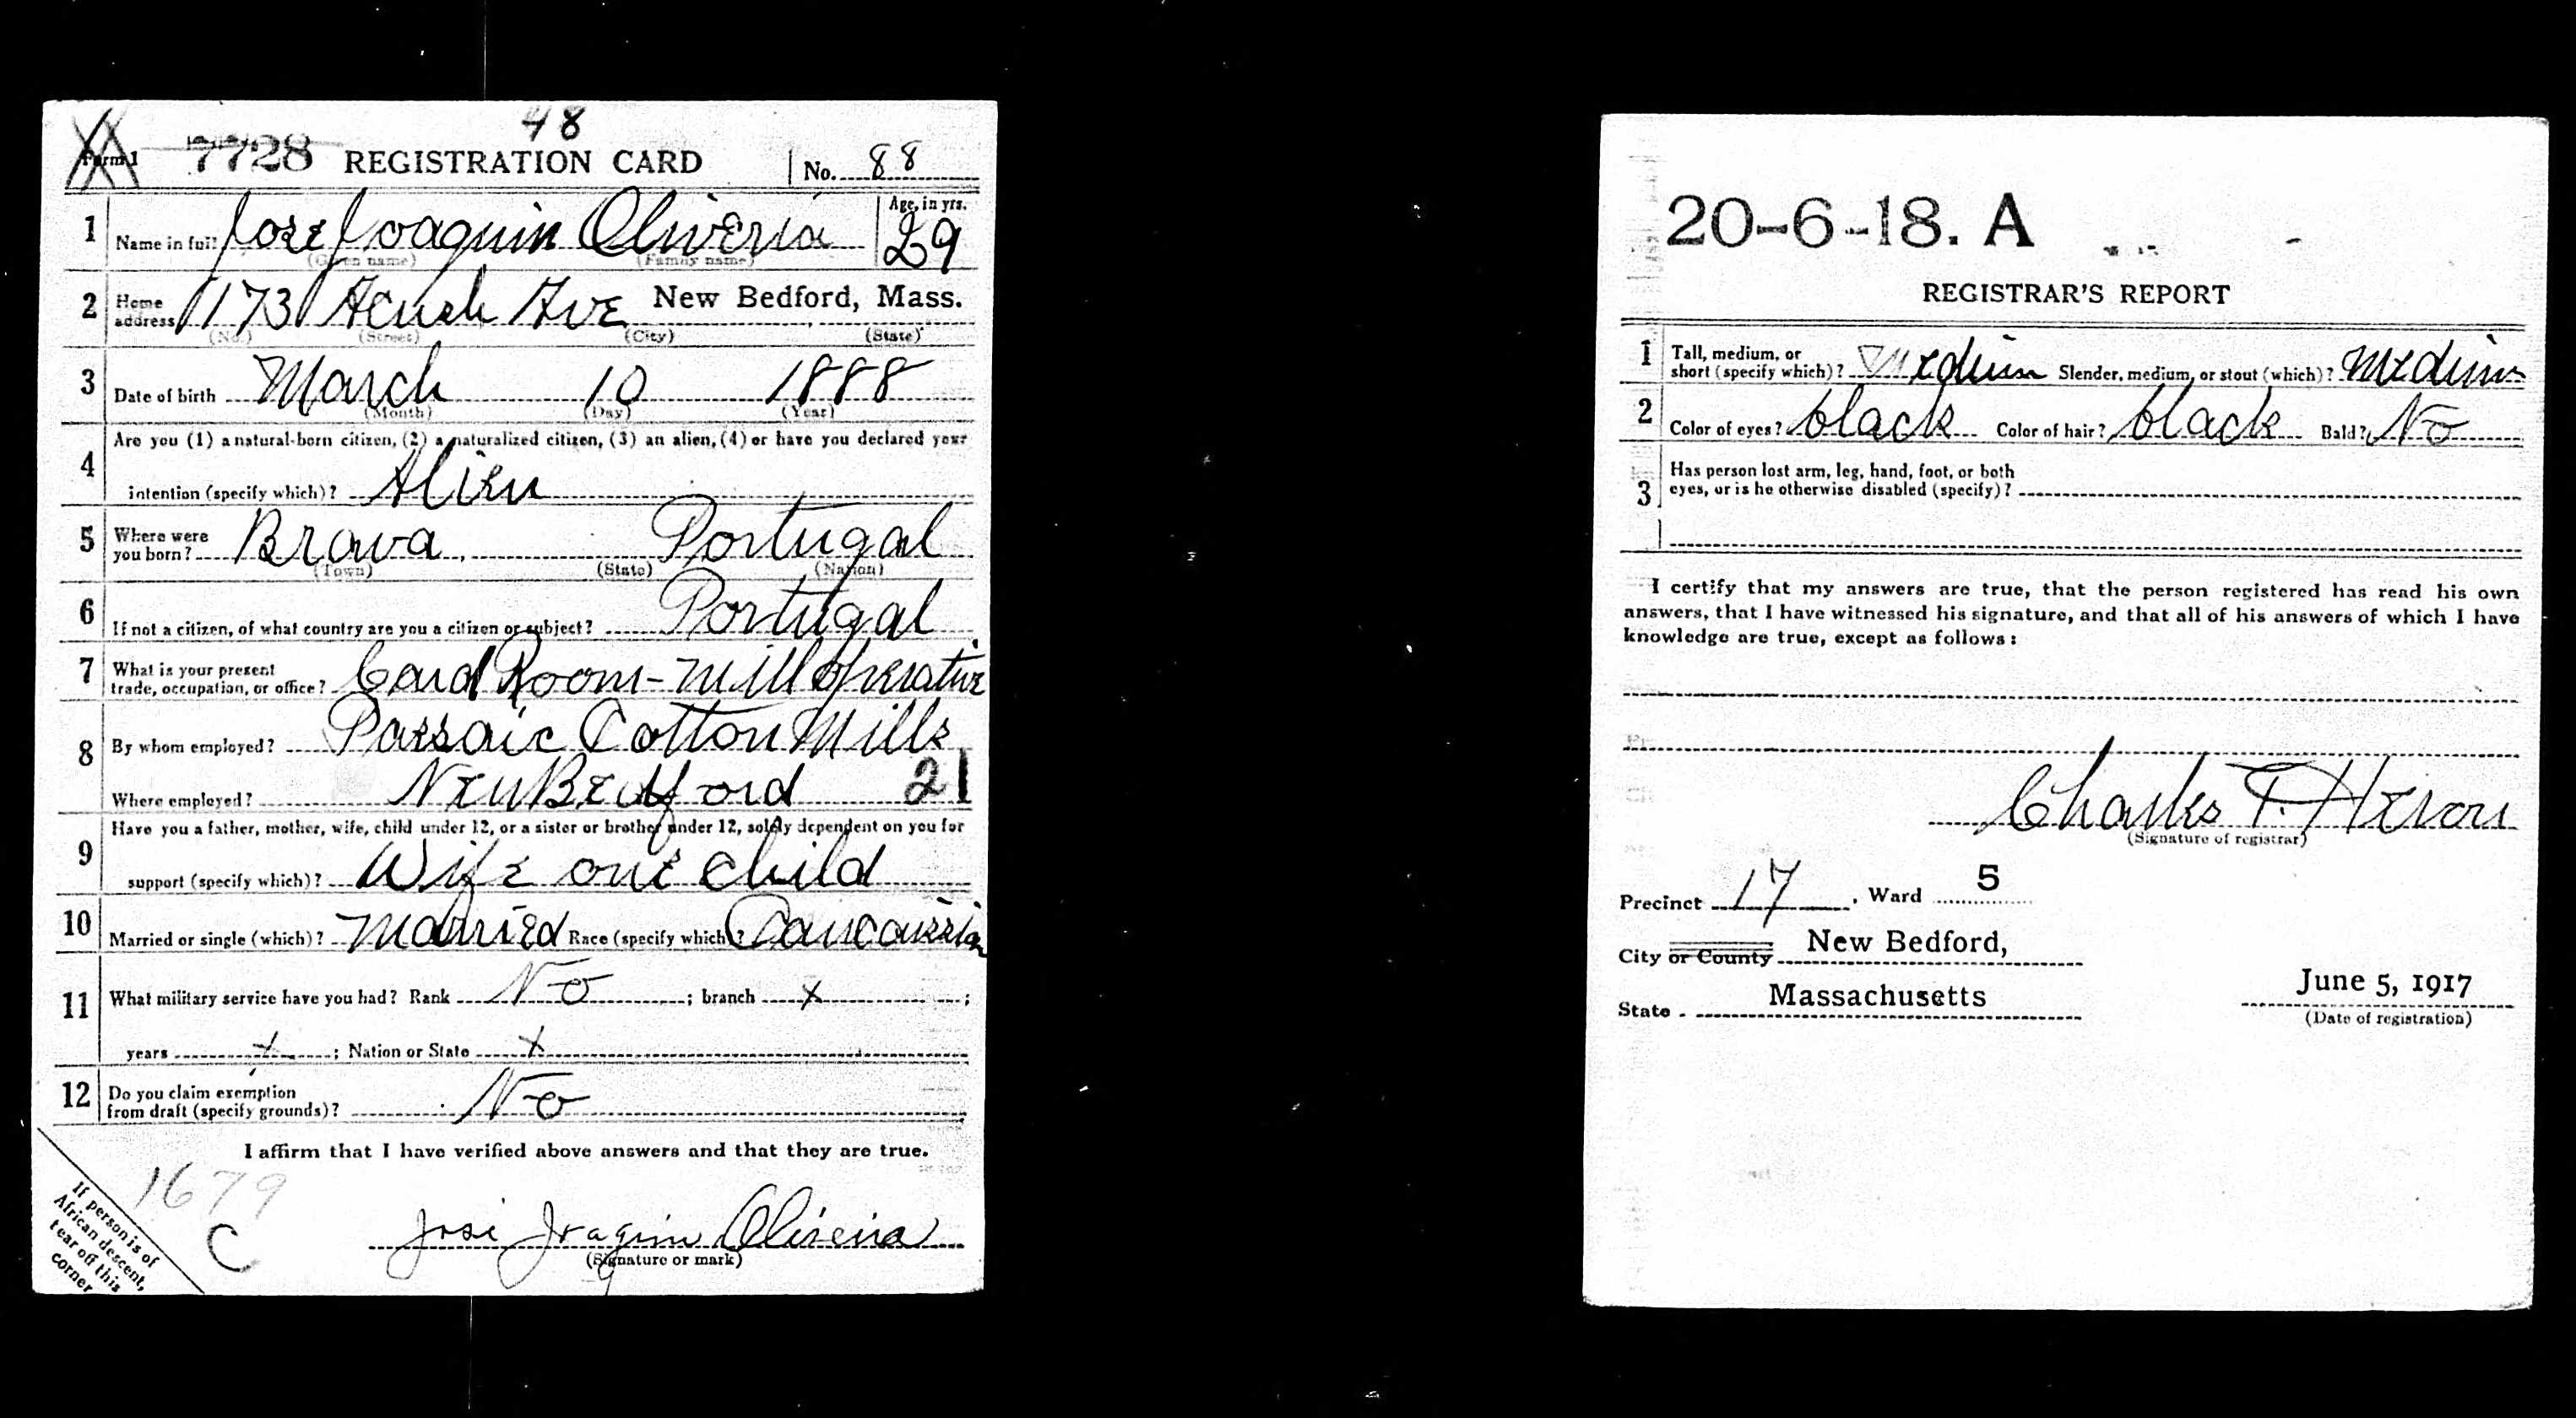 48
Form 1 7728 REGISTRATION CARD No. 88
1 Name in full Jose Joaquin Oliveria Age, in yrs. 29
(Given name) (Family name)
2 Home address 173 Acush Ave New Bedford, Mass.
(No.) (Street) (City) (State)
3 Date of birth March 10 1888
(Month) (Day) (Year)
4 Are you (1) a natural-born citizen, (2) a naturalized citizen, (3) an alien, (4) or have you declared your
intention (specify which)? Alien
5 Where were you born? Brava, Portugal
(Town) (State) (Nation)
6 If not a citizen, of what country are you a citizen or subject? Portugal
7 What is your present trade, occupation, or office? Card Room-Mill Operative
8 By whom employed? Passaic Cotton Mills
Where employed? New Bedford 21
9 Have you a father, mother, wife, child under 12, or a sister or brother under 12, solely dependent on you for
support (specify which)? Wife one child
10 Married or single (which)? Married Race (specify which)? Caucaussian
11 What military service have you had? Rank No ; branch x ;
years x ; Nation or State x
12 Do you claim exemption from draft (specify grounds)? No
I affirm that I have verified above answers and that they are true.
1679
C
If person is of
African descent,
tear off this
corner
Jose Joaquim Oliveira
(Signature or mark)
20-6-18. A
REGISTRAR'S REPORT
1 Tall, medium, or short (specify which)? Medium Slender, medium, or stout (which)? Medium
2 Color of eyes? black Color of hair? black Bald? No
3 Has person lost arm, leg, hand, foot, or both
eyes, or is he otherwise disabled (specify)?
I certify that my answers are true, that the person registered has read his own
answers, that I have witnessed his signature, and that all of his answers of which I have
knowledge are true, except as follows:
Charles T. Heron
(Signature of registrar)
Precinct 17. Ward 5
City or County New Bedford,
State Massachusetts
June 5, 1917
(Date of registration)